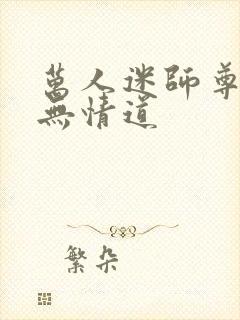 萬人迷師尊
無情道
繁朵